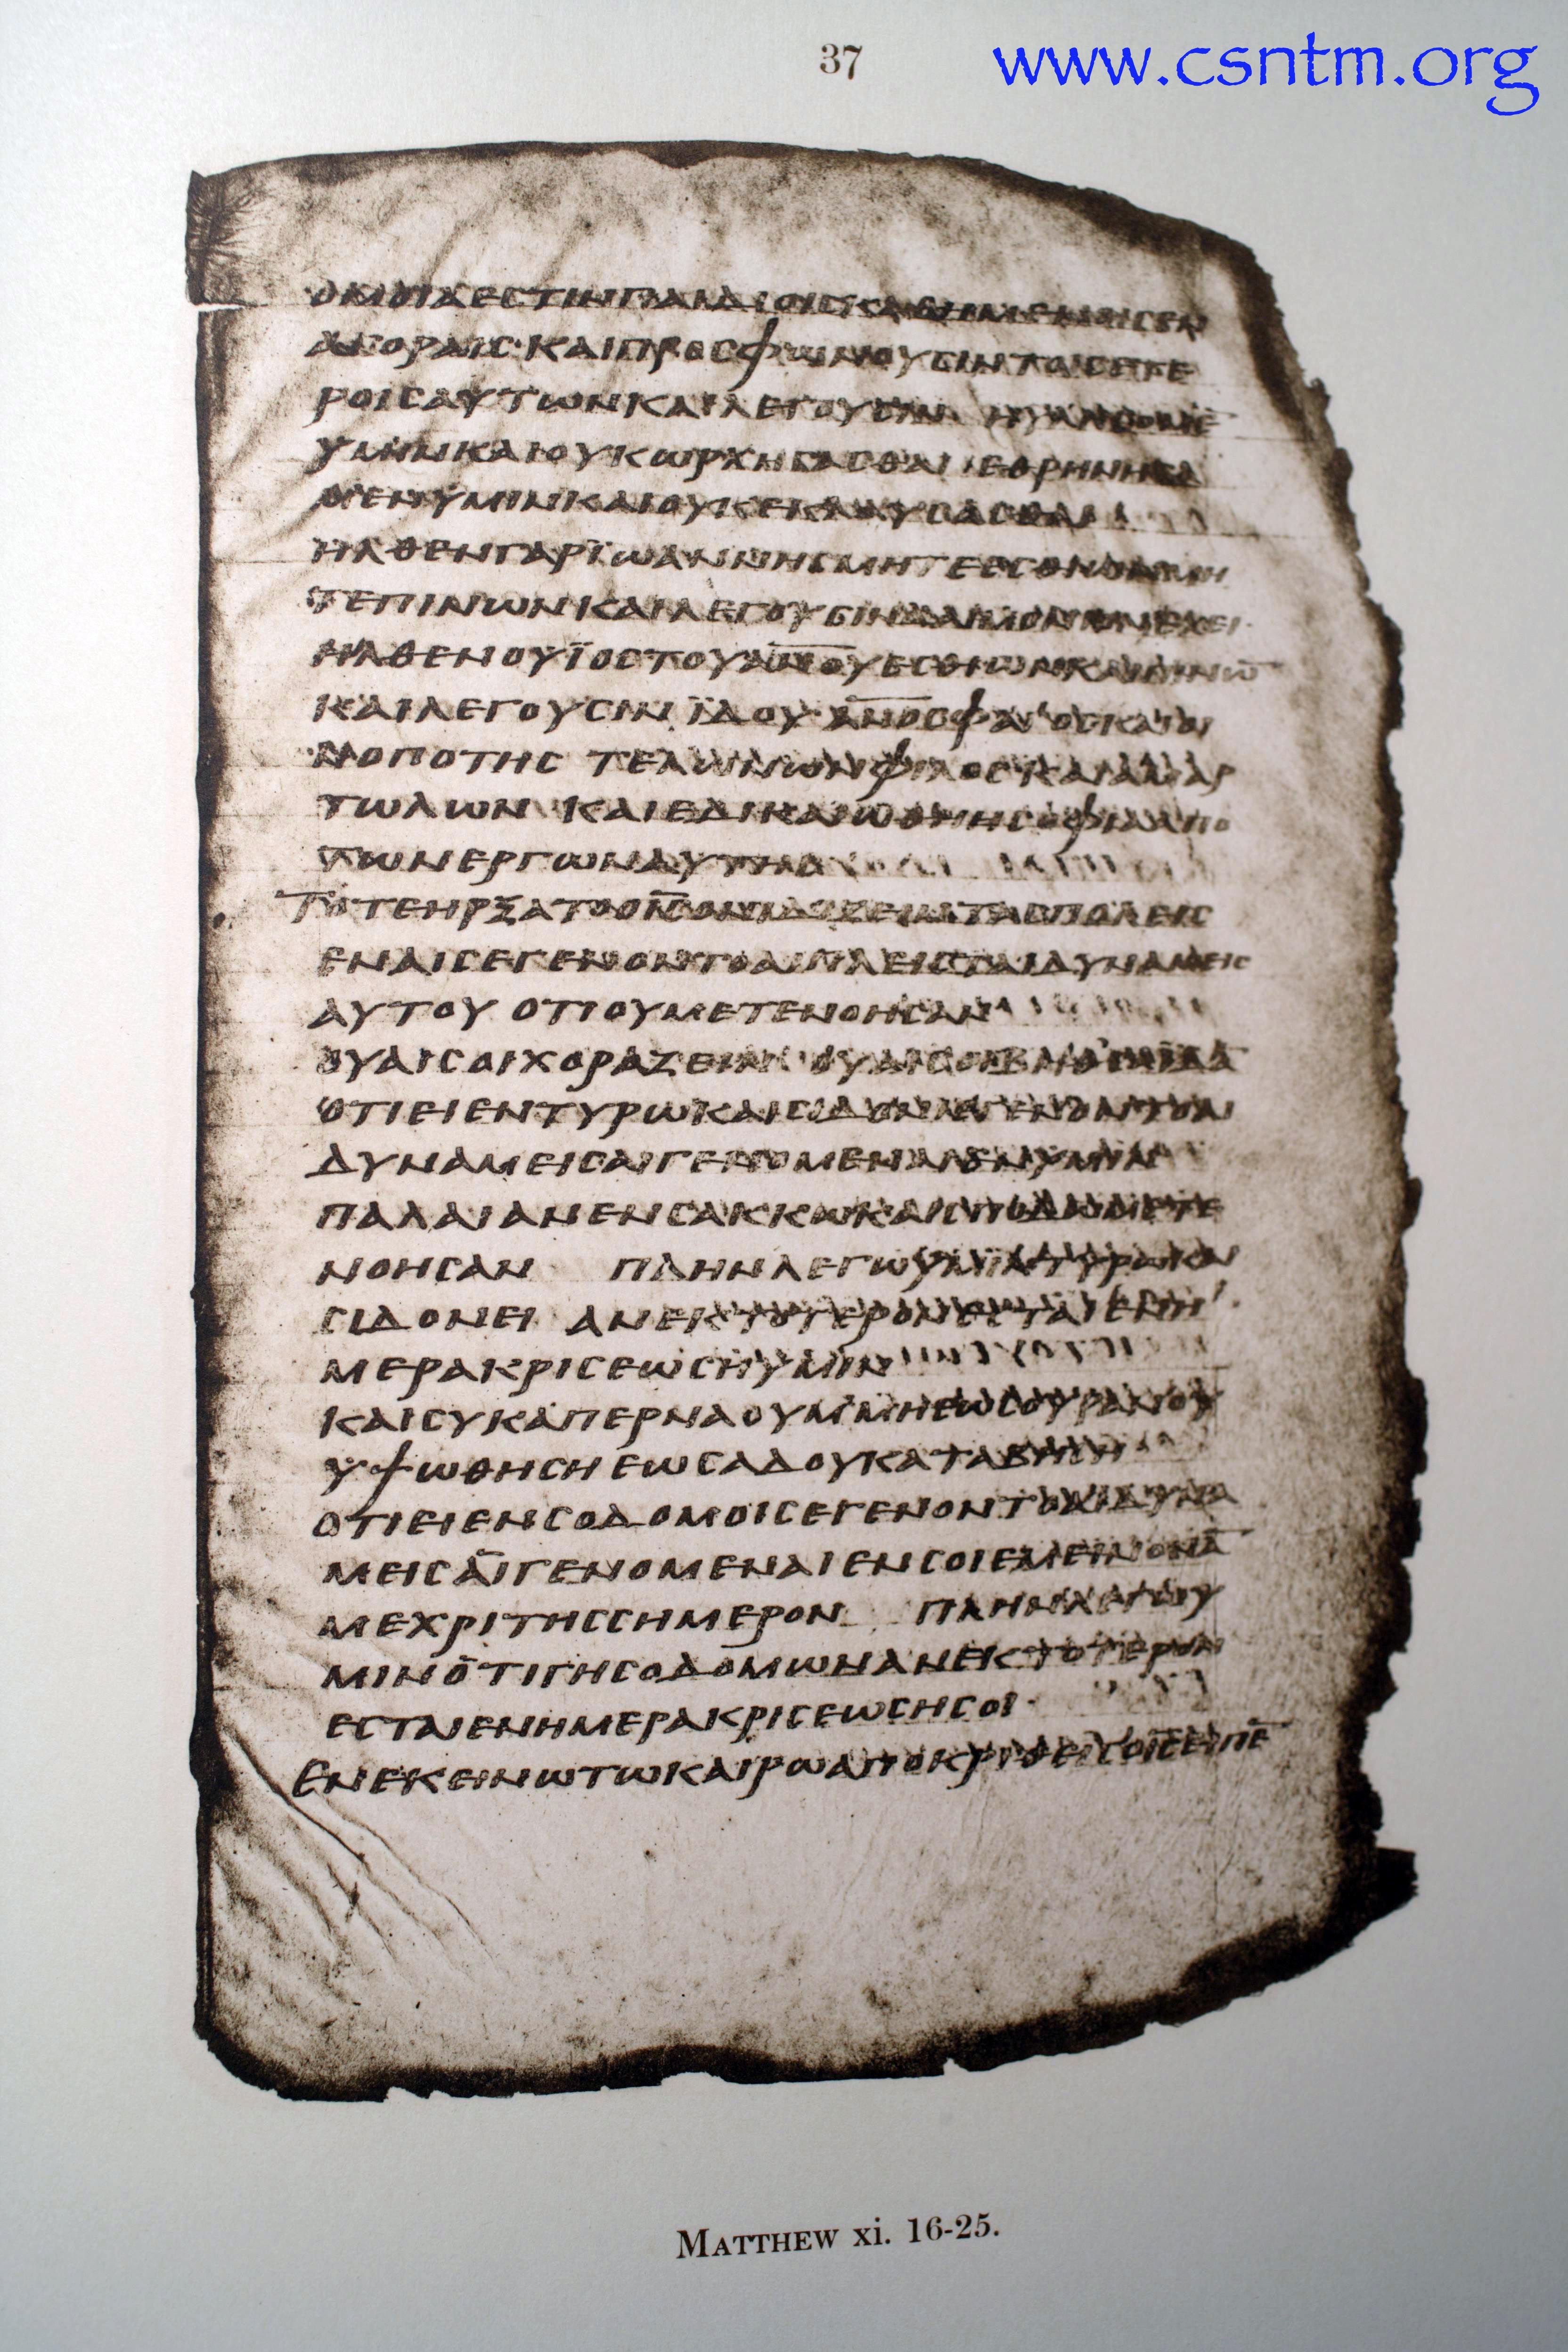 37
www.csntm.org
ΟΜΟΙΑ ΕСΤΙΝ ΠΑΙΔΙΟΙС ΚΑΘΗΜΕΝΟΙС ΕΝ
ΑΓΟΡΑΙС· ΚΑΙ ΠΡΟСΦωΝΟΥСΙΝ ΤΟΙС ΕΤΕ
ΡΟΙС ΑΥΤωΝ ΚΑΙ ΛΕΓΟΥСΙΝ
ΥΜΙΝ ΚΑΙ ΟΥΚ ωΡΧΗСΑСΘΑΙ ΕΘΡΗΝΗСΑ
ΜΕΝ ΥΜΙΝ ΚΑΙ ΟΥΚ ΕΚΛΑΥСΑСΘΑΙ
ΗΛΘΕΝ ΓΑΡ ΪωΑΝΝΗС ΜΗΤΕ
ΤΕ ΠΙΝωΝ ΚΑΙ ΛΕΓΟΥСΙΝ ΔΑΙΜΟΝΙΟΝ ΕΧΕΙ·
ΗΛΘΕΝ Ο ΥΪΟС ΤΟΥ Α̅Ν̅Ο̅Υ̅ ΕСΘΙωΝ ΚΑΙ ΠΙΝω̅
ΚΑΙ ΛΕΓΟΥСΙΝ ΪΔΟΥ Α̅Ν̅Ο̅С̅ ΦΑΓΟС ΚΑΙ ΟΙ
ΝΟΠΟΤΗС ΤΕΛωΝωΝ ΦΙΛΟС ΚΑΙ ΑΜΑΡ
ΤωΛωΝ ΚΑΙ ΕΔΙΚΑΙωΘΗ Η СΟΦΙΑ ΑΠΟ
ΤωΝ ΕΡΓωΝ ΑΥΤΗС
ΤΟΤΕ ΗΡΞΑΤΟ Ο Ι̅С̅ ΟΝΙΔΙΖΕΙΝ ΤΑС ΠΟΛΕΙС
ΕΝ ΑΙС ΕΓΕΝΟΝΤΟ ΑΙ ΠΛΕΙСΤΑΙ ΔΥΝΑΜΕΙС
ΑΥΤΟΥ ΟΤΙ ΟΥ ΜΕΤΕΝΟΗСΑΝ
ΟΥΑΙ СΟΙ ΧΟΡΑΖΕΙΝ· ΟΥΑΙ СΟΙ
ΟΤΙ ΕΙ ΕΝ ΤΥΡω ΚΑΙ СΙΔΟΝΙ ΕΓΕΝΟΝΤΟ ΑΙ
ΔΥΝΑΜΕΙС ΑΙ ΓΕΝΟΜΕΝΑΙ ΕΝ ΥΜΙΝ
ΠΑΛΑΙ ΑΝ ΕΝ СΑΚΚω ΚΑΙ СΠΟΔω ΜΕΤΕ
ΝΟΗСΑΝ ΠΛΗΝ ΛΕΓω ΥΜΙΝ ΤΥΡω ΚΑΙ
СΙΔΟΝΕΙ ΑΝΕΚΤΟΤΕΡΟΝ ΕСΤΑΙ ΕΝ Η
ΜΕΡΑ ΚΡΙСΕωС Η ΥΜΙΝ
ΚΑΙ СΥ ΚΑΠΕΡΝΑΟΥΜ ΜΗ ΕωС ΟΥΡΑΝΟΥ
ΥΨωΘΗСΗ ΕωС ΑΔΟΥ ΚΑΤΑΒΗСΗ
ΟΤΙ ΕΙ ΕΝ СΟΔΟΜΟΙС ΕΓΕΝΟΝΤΟ ΑΙ ΔΥΝΑ
ΜΕΙС ΑΙ ΓΕΝΟΜΕΝΑΙ ΕΝ СΟΙ ΕΜΕΙΝΟΝ Α̅
ΜΕΧΡΙ ΤΗС СΗΜΕΡΟΝ ΠΛΗΝ ΛΕΓω Υ
ΜΙΝ ΟΤΙ ΓΗ СΟΔΟΜωΝ ΑΝΕΚΤΟΤΕΡΟΝ
ΕСΤΑΙ ΕΝ ΗΜΕΡΑ ΚΡΙСΕωС Η СΟΙ·
ΕΝ ΕΚΕΙΝω Τω ΚΑΙΡω ΑΠΟΚΡΙΘΕΙС Ο Ι̅С̅ ΕΙΠΕ̅
MATTHEW xi. 16-25.